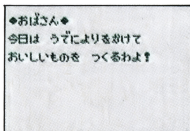 ◆おばさん◆
今日は うでによりをかけて
おいしいものを つくるわよ!